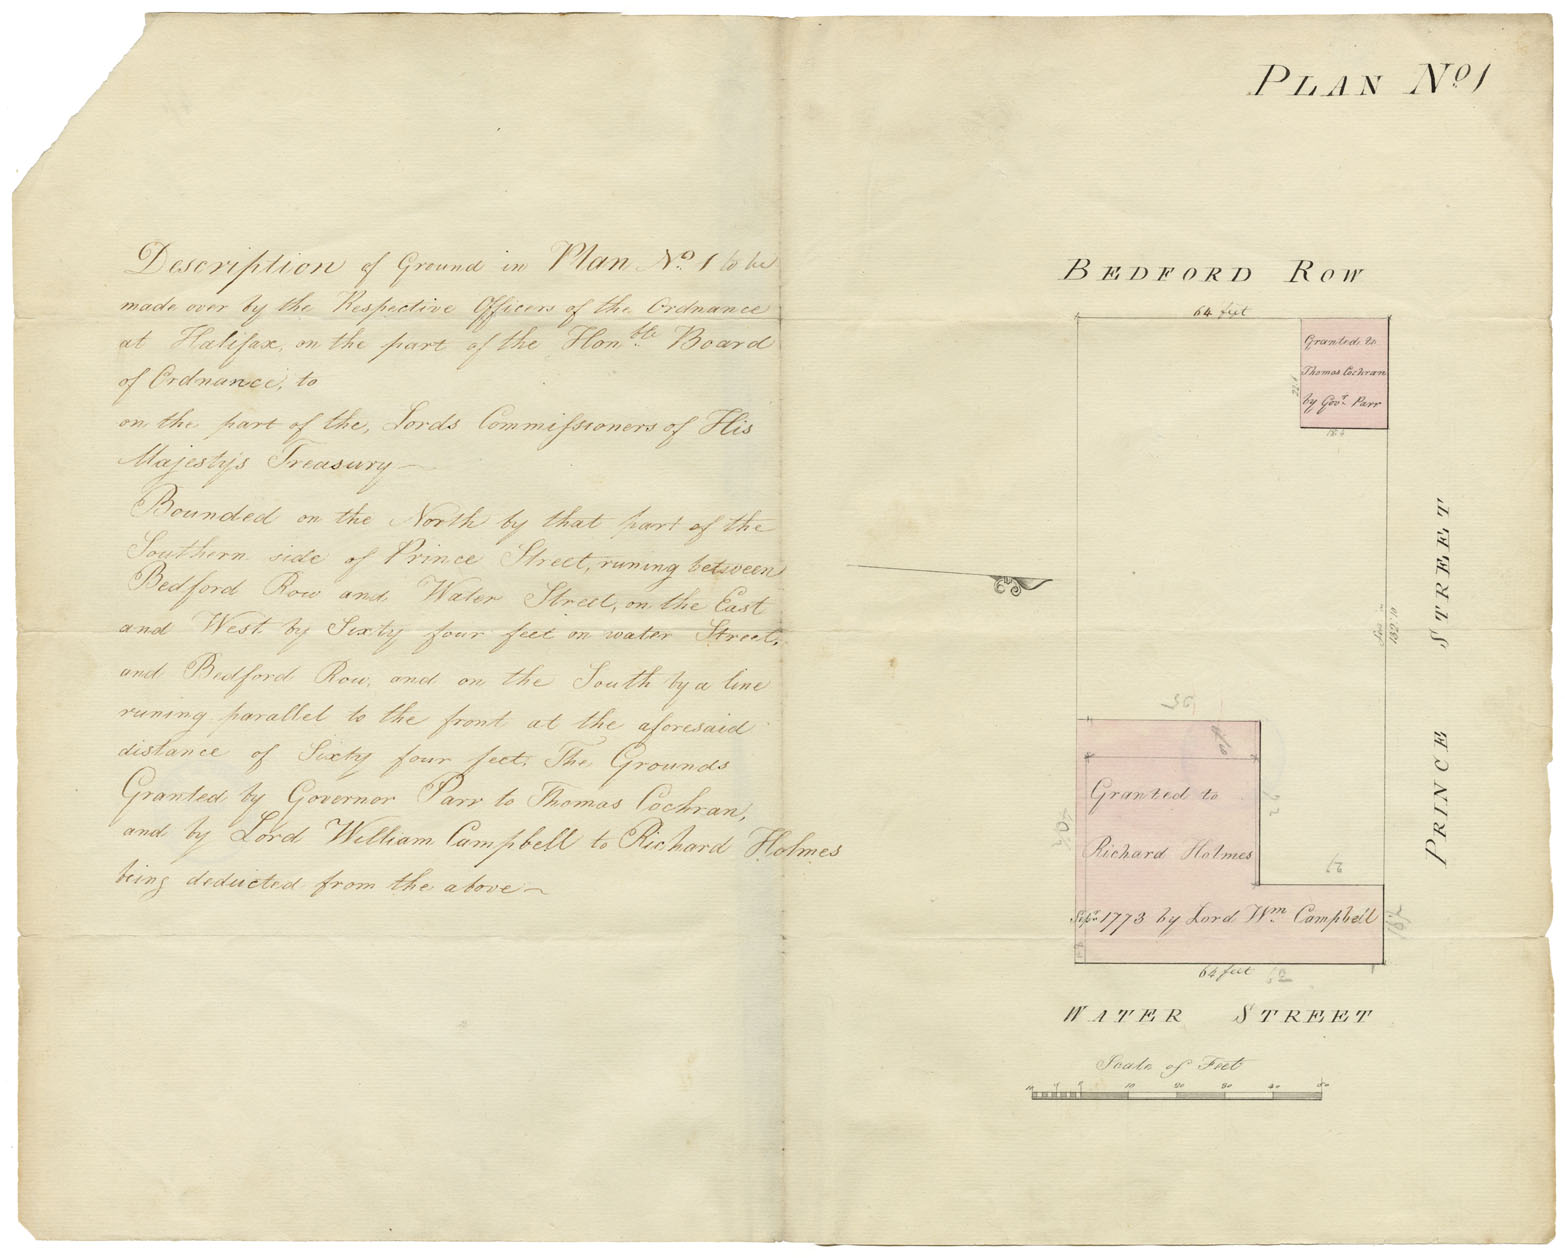 Description of Ground in Plan No. 1 to be
made over by the Respective Officers of the Ordnance
at Halifax, on the part of the Honble. Board
of Ordnance, to
on the part of the, Lords Commissioners of His
Majesty's Treasury—
Bounded on the North by that part of the
Southern side of Prince Street, runing between
Bedford Row and Water Street, on the East
and West by Sixty four feet on water Street,
and Bedford Row, and on the South by a line
runing parallel to the front at the aforesaid
distance of Sixty four feet. The Grounds
Granted by Governor Parr to Thomas Cochran,
and by Lord William Campbell to Richard Holmes
being deducted from the above—
PLAN No. 1
BEDFORD ROW
64 feet
Granted to
Thomas Cochran
by Govr. Parr
PRINCE STREET
Granted to
Richard Holmes
Sepr. 1773 by Lord Wm. Campbell
64 feet
WATER STREET
Scale of Feet
10 5 0 10 20 30 40 50